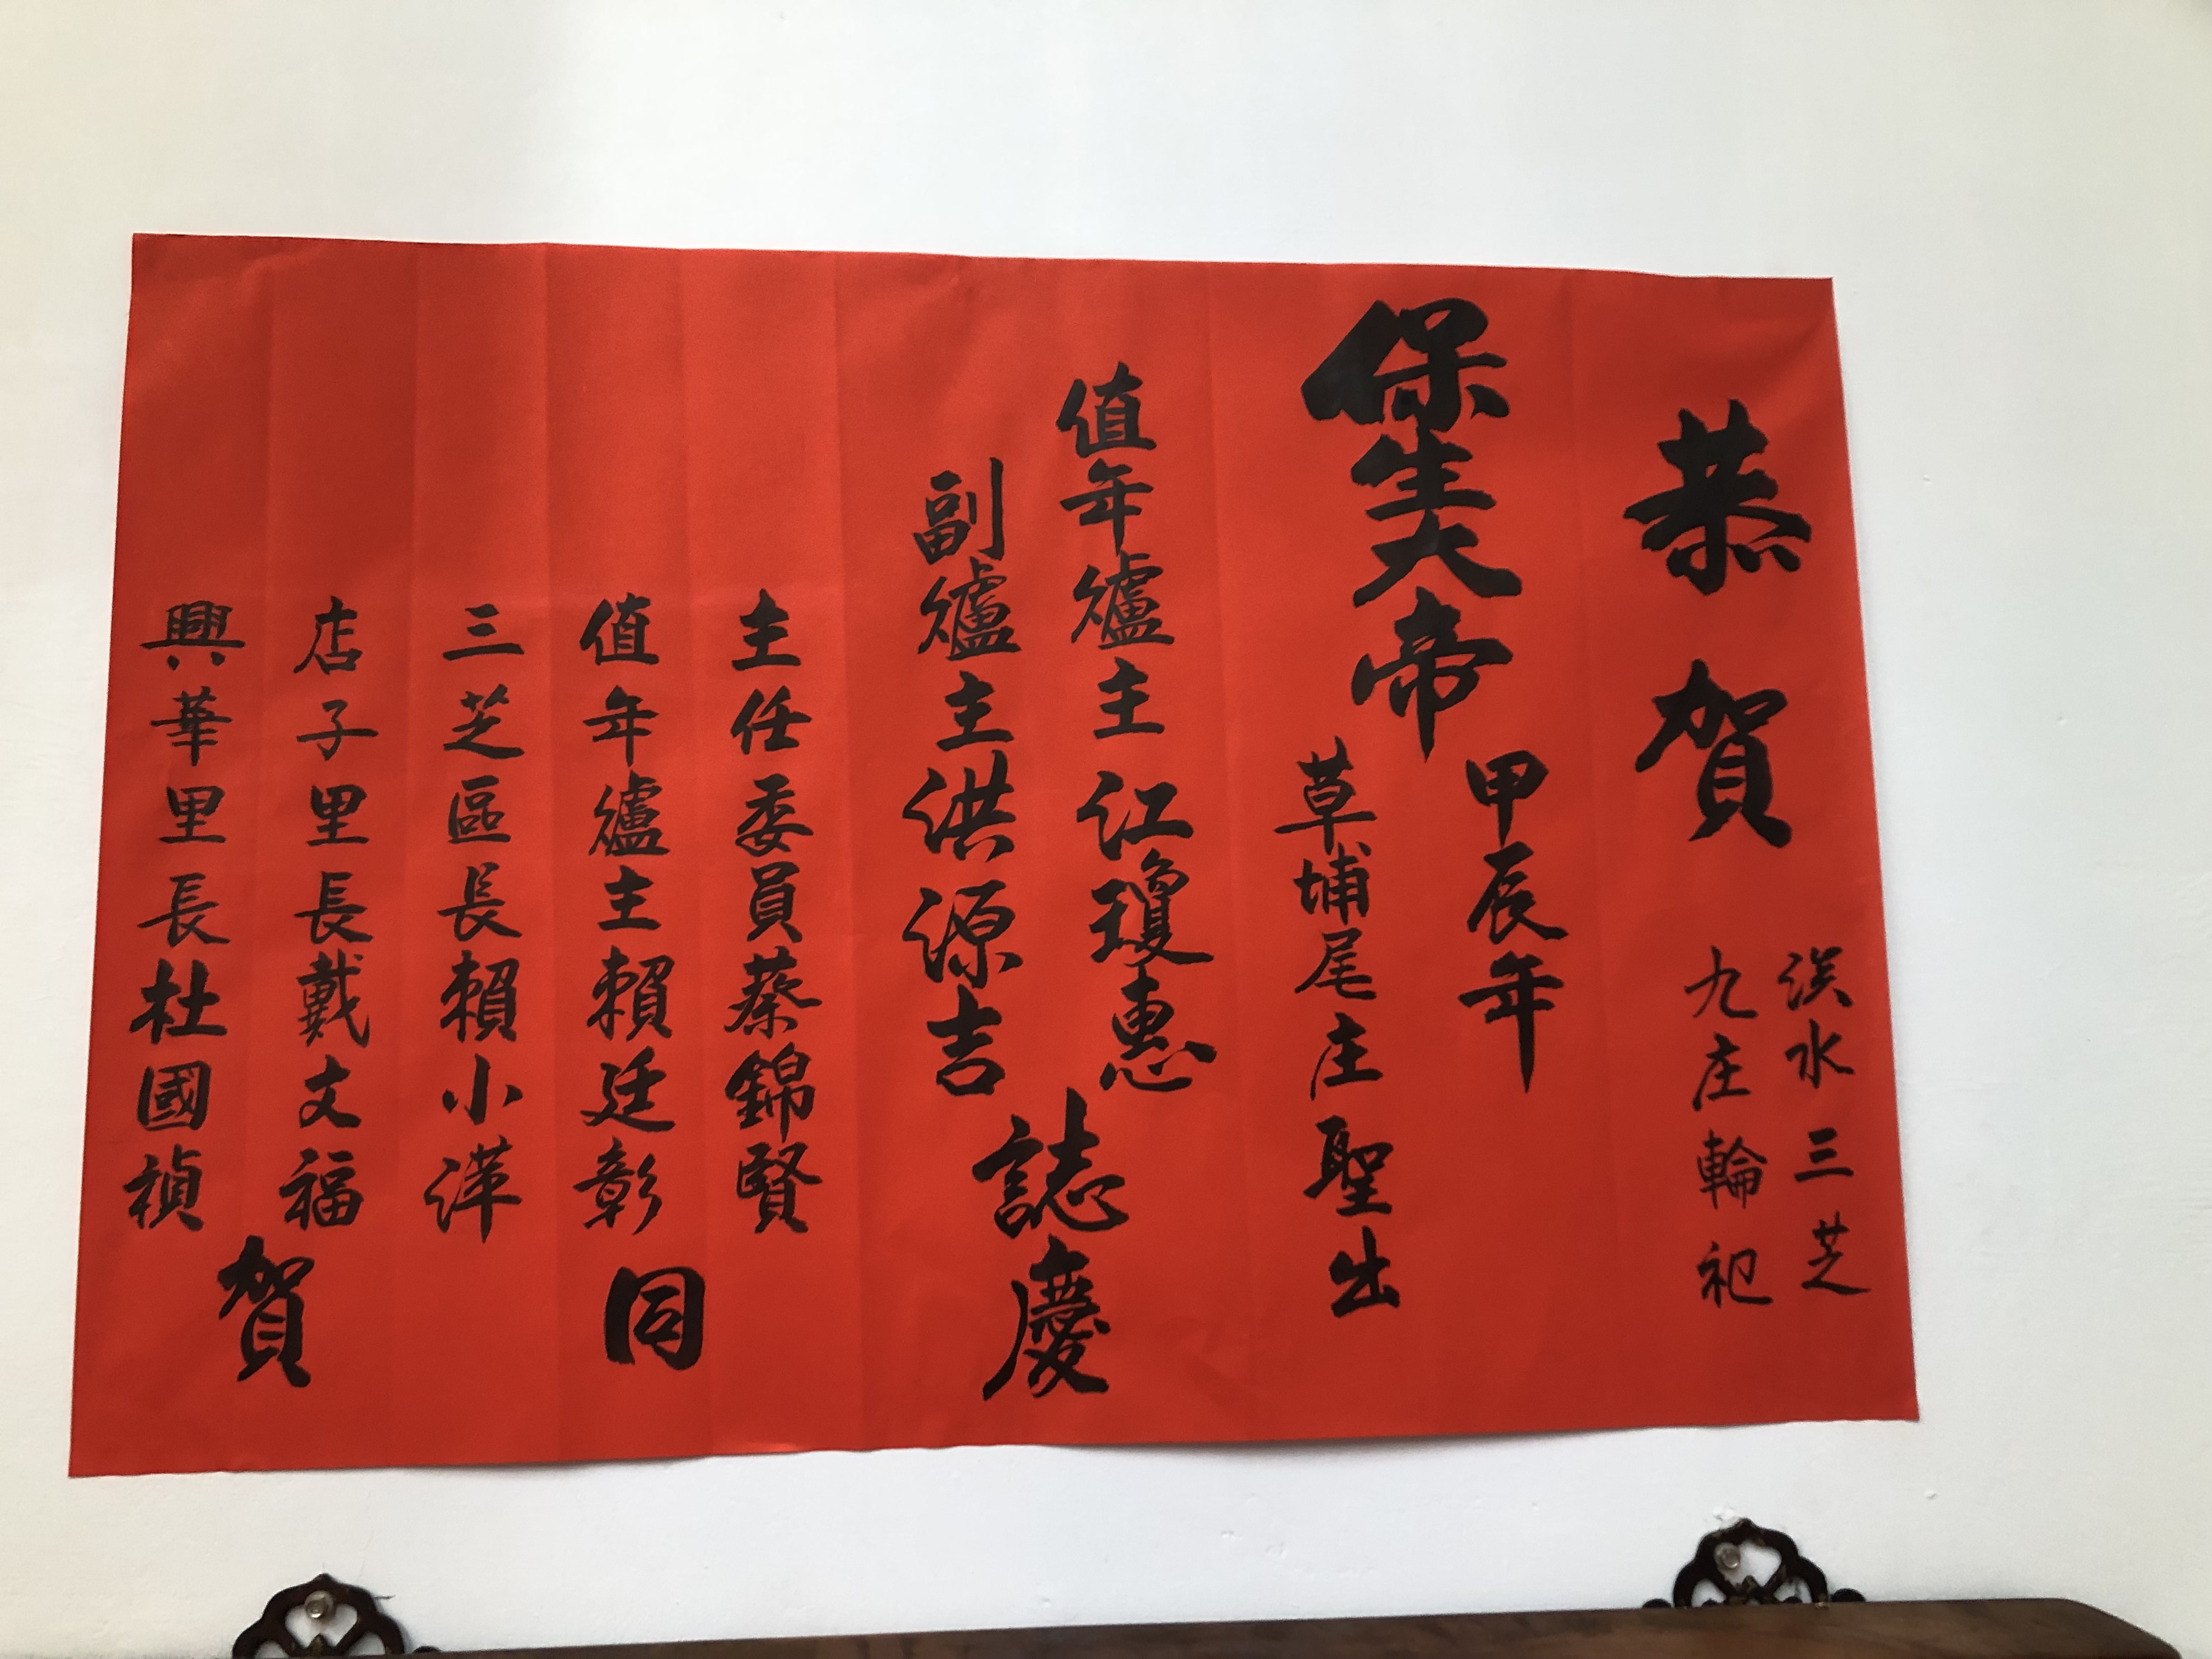 恭賀
淡水三芝
九庄輪祀
保生大帝
甲辰年
草埔尾庄聖出
值年爐主江瓊惠
副爐主洪源吉
誌慶
主任委員蔡錦賢
值年爐主賴廷彰
三芝區長賴小萍
店子里長戴文福
興華里長杜國禎
同賀